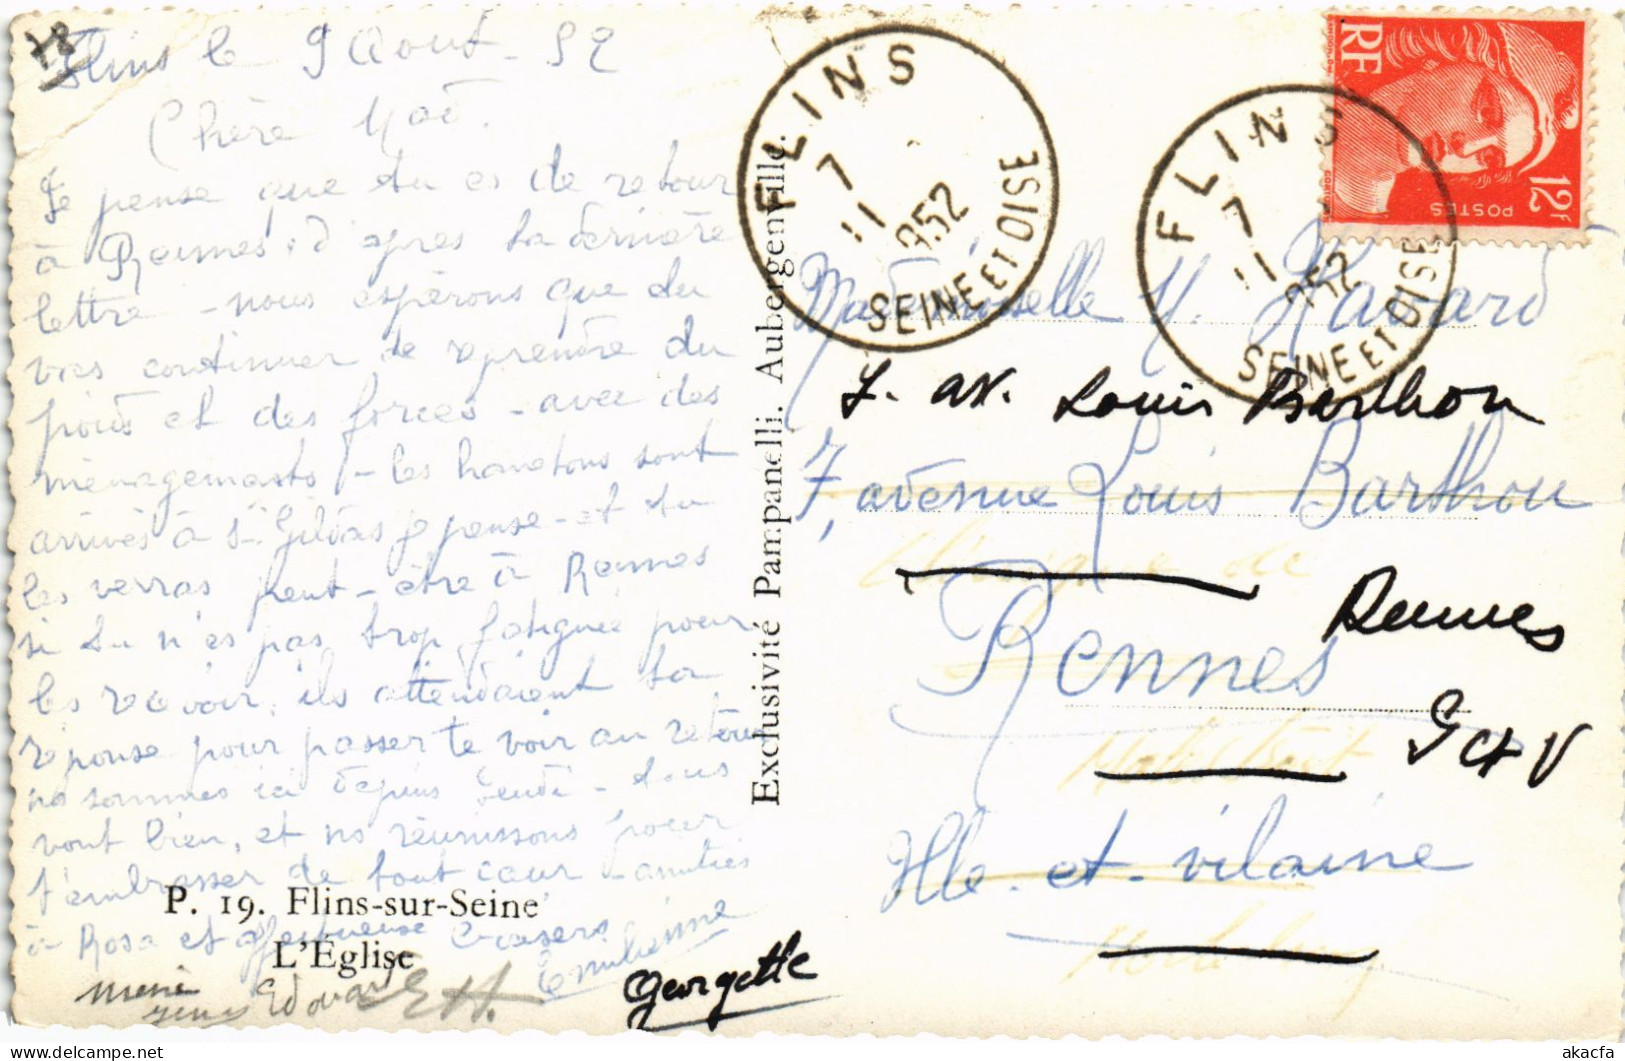 78
Flins le 9 Aout - 52
Chère
Je pense que tu es de retour
à Rennes, d'après ta dernière
lettre - nous espérons que tu
vas continuer de reprendre du
poids et des forces - avec des
ménagements - les hanetons sont
arrivés à St Gildas je pense - et tu
les verras peut-être à Rennes
si tu n'es pas trop fatiguée pour
les recevoir, ils attendaient ta
réponse pour passer te voir au retour
ns sommes ici depuis - tous
vont bien, et ns réunissons pour
t'embrasser de tout cœur - amitiés
à Rosa et affectueux baisers
Emilienne
Edouard EH.
Georgette
P. 19. Flins-sur-Seine
L'Église
Exclusivité Pampanelli. Aubergenville.
FLINS
7
11 8
952
SEINE ET OISE
FLINS
7
11
952
SEINE ET OISE
RF
12F
POSTES
Mademoiselle Y. Havard
7. av. Louis Barthou
7, avenue Louis Barthou
Clinique de
Rennes
Rennes
I et V
Malestroit
Ille-et-vilaine
Morbihan
akacfa